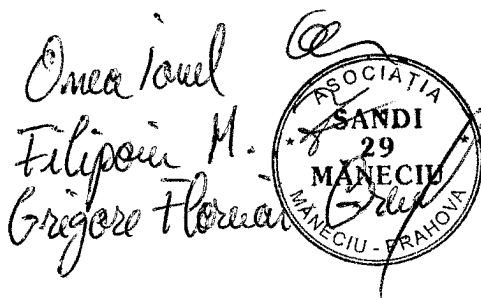 Onea Ionel
Filipoiu M.
Grigore Florian
ASOCIAȚIA
SANDI
29
MĂNECIU
MĂNECIU - PRAHOVA